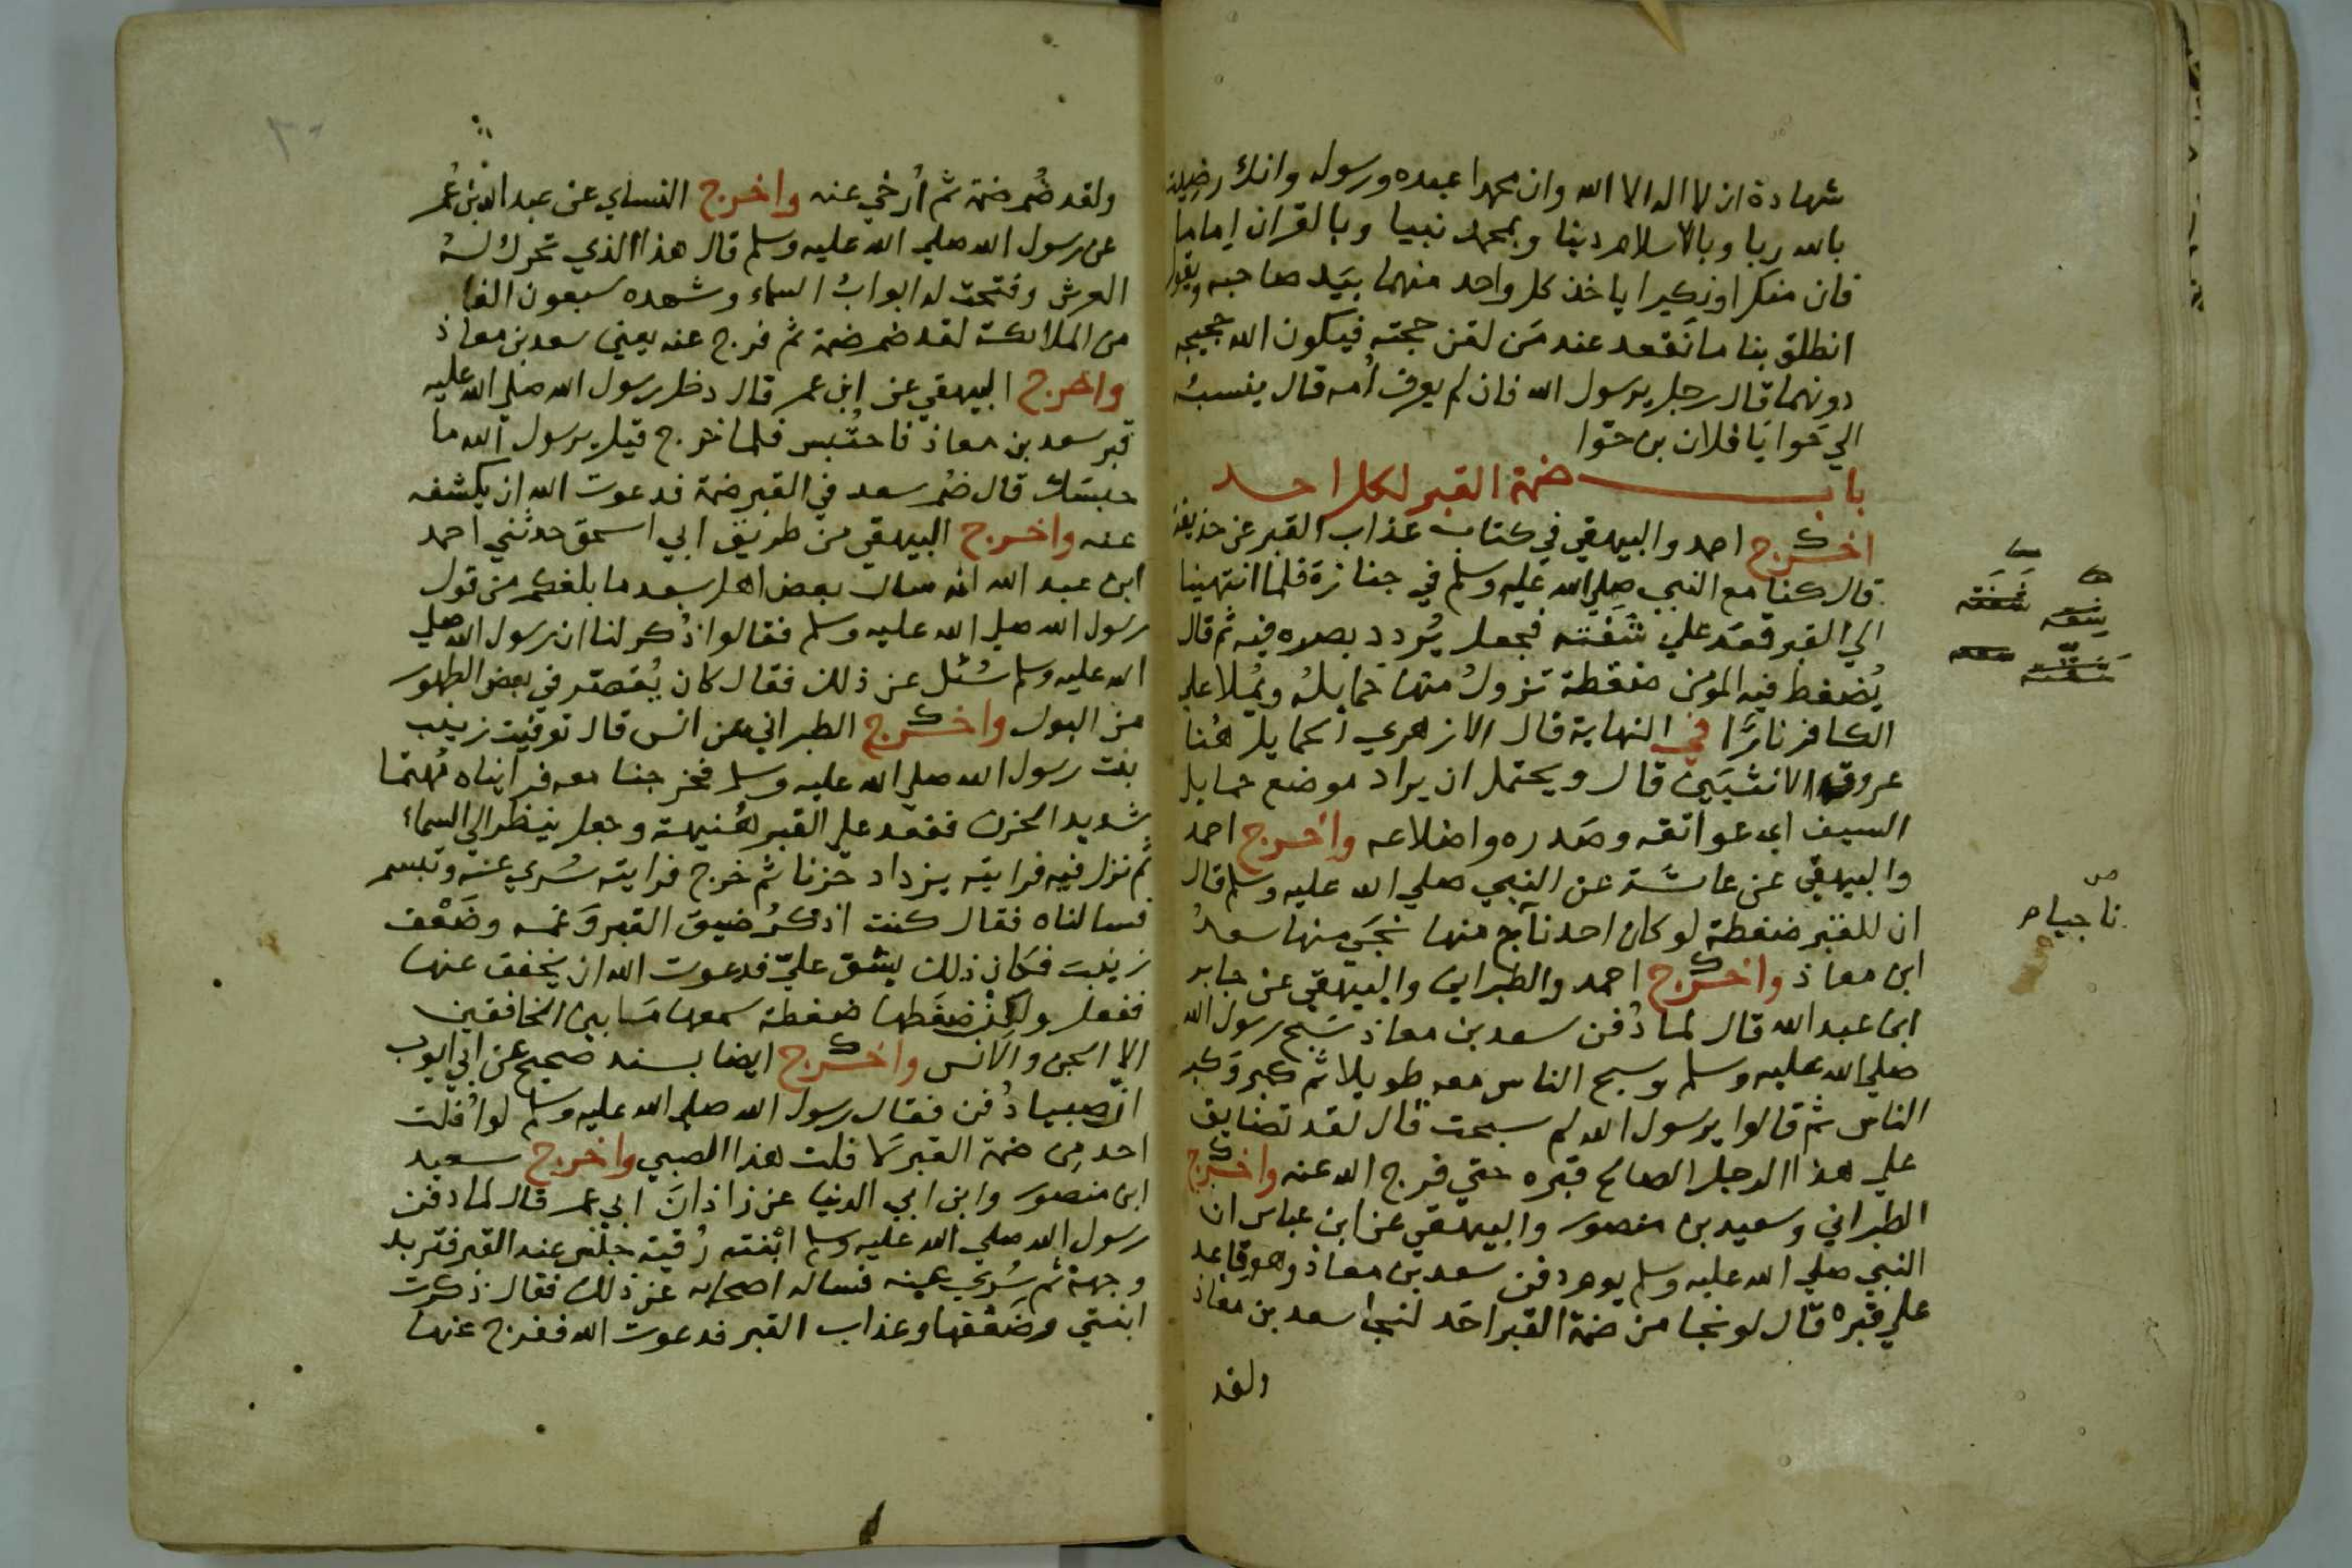 شهادة ان لا اله الا الله وان محمدا عبده ورسوله وانك رضيت
بالله ربا وبالاسلام دينا وبمحمد نبيا وبالقران اماما
فان منكرا ونكيرا ياخذ كل واحد منهما بيَد صاحبه ويقول
انطلق بنا ما نَقعد عند مَن لقن حجته فيكون الله حجيجه
دونهما قال رجل يرسول الله فان لم يعرف اُمه قال ينسبُه
الي حَوا يَا فلان بن حوّا
باب ضمة القبر لكل احد
اخرج احمد والبيهقي في كتاب عذاب القبر عن حذيفة
قال كنا مع النبي صلي الله عليه وسلم في جنازة فلما انتهينا
الي القبر قعَد علي شَفَته فجعل يُردد بصره فيه ثم قال
يُضغط فيه المومن ضغطة تزولُ منها حمايلُه ويُملا علي
الكافر نارًا في النهاية قال الازهري الحمايل هُنا
عروق الانثيَين قال ويحتمل ان يراد موضع حمايل
السيف اي عواتقه وصَدره واضلاعه واخرج احمد
والبيهقي عن عائشة عن النبي صلي الله عليه وسلم قال
ان للقبر ضغطة لو كان احد ناجٍ منها نجَي منها سعدُ
ناجيا
ابن معاذ واخرج احمد والطبراني والبيهقي عن جابر
ابن عبد الله قال لما دُفن سعد بن معاذ سَبح رسول الله
صلي الله عليه وسلم وسبح الناس معه طويلا ثم كبر وَكبر
الناس ثم قالوا يرسول الله لم سبحت قال لقد تضايق
علي هذا الرجل الصالح قبره حتي فرج الله عنه واخرج
الطبراني وسعيد بن منصور والبيهقي عن ابن عباس ان
النبي صلي الله عليه وسلم يوم دفن سعد بن معاذ وهو قاعد
علي قبره قال لو نجا من ضمة القبر احَد لنجا سعد بن معاذ
ولقد
ولقد ضُم ضمة ثم اُرخي عنه واخرج النساي عن عبد الله بن عُمر
عن رسول الله صلي الله عليه وسلم قال هذا الذي تحرك لهُ
العرش وفتحت له ابوابُ السماء وشهده سبعون الفا
من الملائكة لقد ضم ضمة ثم فرج عنه يعني سعد بن معاذ
واخرج البيهقي عن ابن عمر قال دخل رسول الله صلي الله عليه
قبر سعد بن معاذ فاحتُبس فلما خرج قيل يرسول الله ما
حبسَك قال ضُم سعد في القبر ضمة فدعوت الله ان يكشفه
عنه واخرج البيهقي من طريق ابي اسحق حدثني احمد
ابن عبد الله انه سال بعض اهل سعد ما بلغكم من قول
رسول الله صلي الله عليه وسلم فقالوا ذُكر لنا ان رسول الله صلي
الله عليه وسلم سُئل عن ذلك فقال كان يُقصّر في بعض الطهور
من البول واخرج الطبراني عن انس قال توفيت زينب
بنت رسول الله صلي الله عليه وسلم فخرجنا معه فرايناه مُهتما
شديد الحزن فقعد علي القبر هُنيهة وجعل ينظر الي السماء
ثم نزل فيه فرايته يزداد حزنا ثم خرج فرايته سُري عنه وتبسم
فسالناه فقال كنت اذكرُ ضيق القبر وَغمه وضَعْف
زينبَ فكان ذلك يشق عليّ فدعوت الله ان يخفف عنها
ففعل ولكن ضغَطها ضغطة سمعها مَا بين الخافقين
الا الجن والانس واخرج ايضا بسند صحيح عن ابي ايوب
ان صبيا دُفن فقال رسول الله صلي الله عليه وسلم لو اُفلت
احد مِن ضمة القبر لَا فلت هذا الصبي واخرج سعيد
ابن منصور وابن ابي الدنيا عن زاذان ابي عمر قال لما دفن
رسول الله صلي الله عليه وسلم ابْنته رُقية جلَس عند القبر فتربد
وجهه ثم سُري عنه فساله اصحابه عن ذلك فقال ذكرت
ابنتي وضَعْفها وعذاب القبر فدعوت الله ففرج عنها